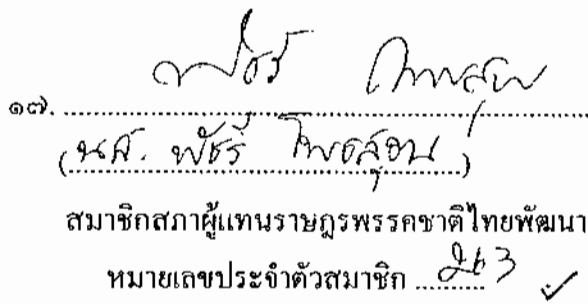 ๑๗. พัชรี โพธสุธน
(นส. พัชรี โพธสุธน)
สมาชิกสภาผู้แทนราษฎรพรรคชาติไทยพัฒนา
หมายเลขประจำตัวสมาชิก 263